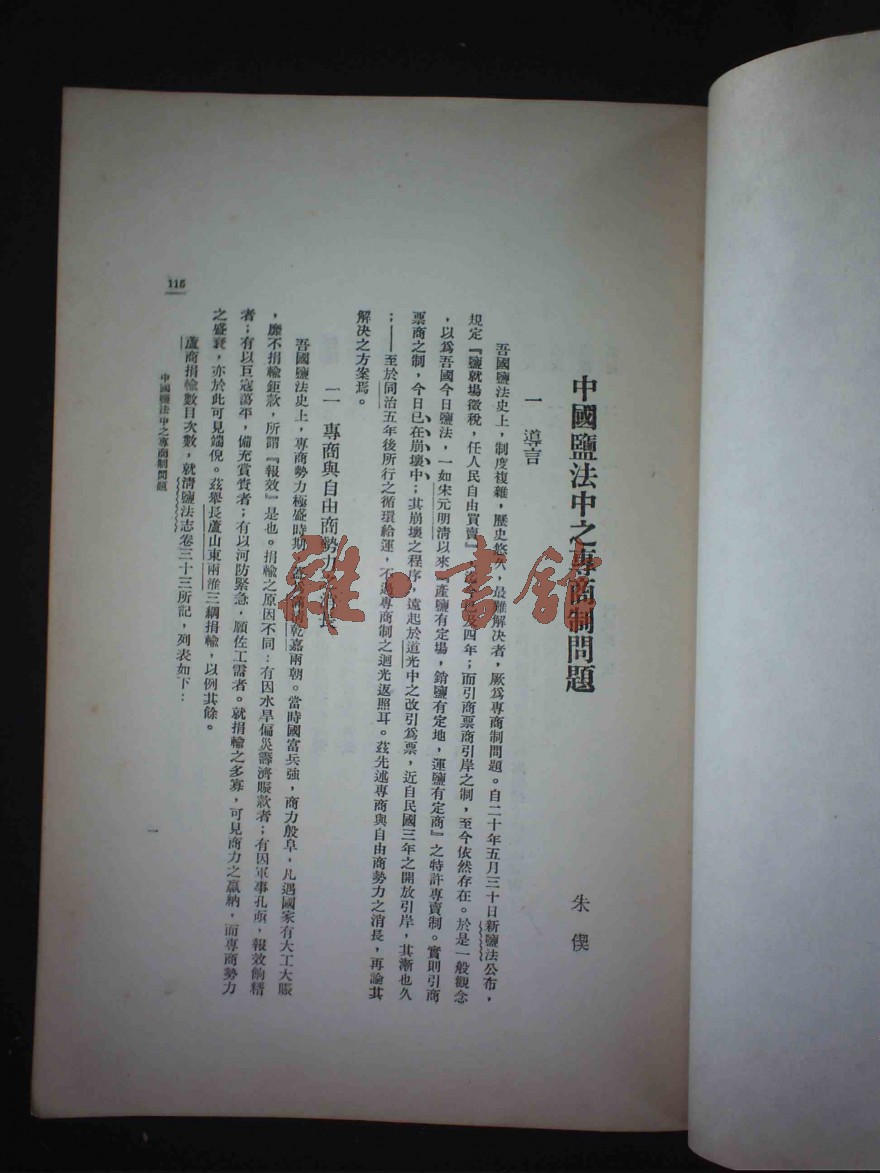 中國鹽法中之專商制問題
朱偰
一 導言
吾國鹽法史上，制度複雜，歷史悠久，最難解決者，厥爲專商制問題。自二十年五月三十日新鹽法公布，
規定『鹽就場徵稅，任人民自由買賣』，迄今已及四年；而引商票商引岸之制，至今依然存在。於是一般觀念
，以爲吾國今日鹽法，一如宋元明清以來『產鹽有定場，銷鹽有定地，運鹽有定商』之特許專賣制。實則引商
票商之制，今日已在崩壞中；其崩壞之程序，遠起於道光中之改引爲票，近自民國三年之開放引岸，其漸也久
；——至於同治五年後所行之循環給運，不過專商制之迴光返照耳。茲先述專商與自由商勢力之消長，再論其
解決之方案焉。
二 專商與自由商勢力之消長
吾國鹽法史上，專商勢力極盛時期，乾嘉兩朝。當時國富兵強，商力殷阜，凡遇國家有大工大賑
，靡不捐輸鉅款，所謂『報效』是也。捐輸之原因不同：有因水旱偏災籌濟賑款者；有因軍事孔亟，報效餉糈
者；有以巨寇蕩平，備充賞賚者；有以河防緊急，願佐工需者。就捐輸之多寡，可見商力之贏絀，而專商勢力
之盛衰，亦於此可見端倪。茲舉長蘆山東兩淮三綱捐輸，以例其餘。
蘆商捐輸數目次數，就清鹽法志卷三十三所記，列表如下：
中國鹽法中之專商制問題
一
115
雜·書館